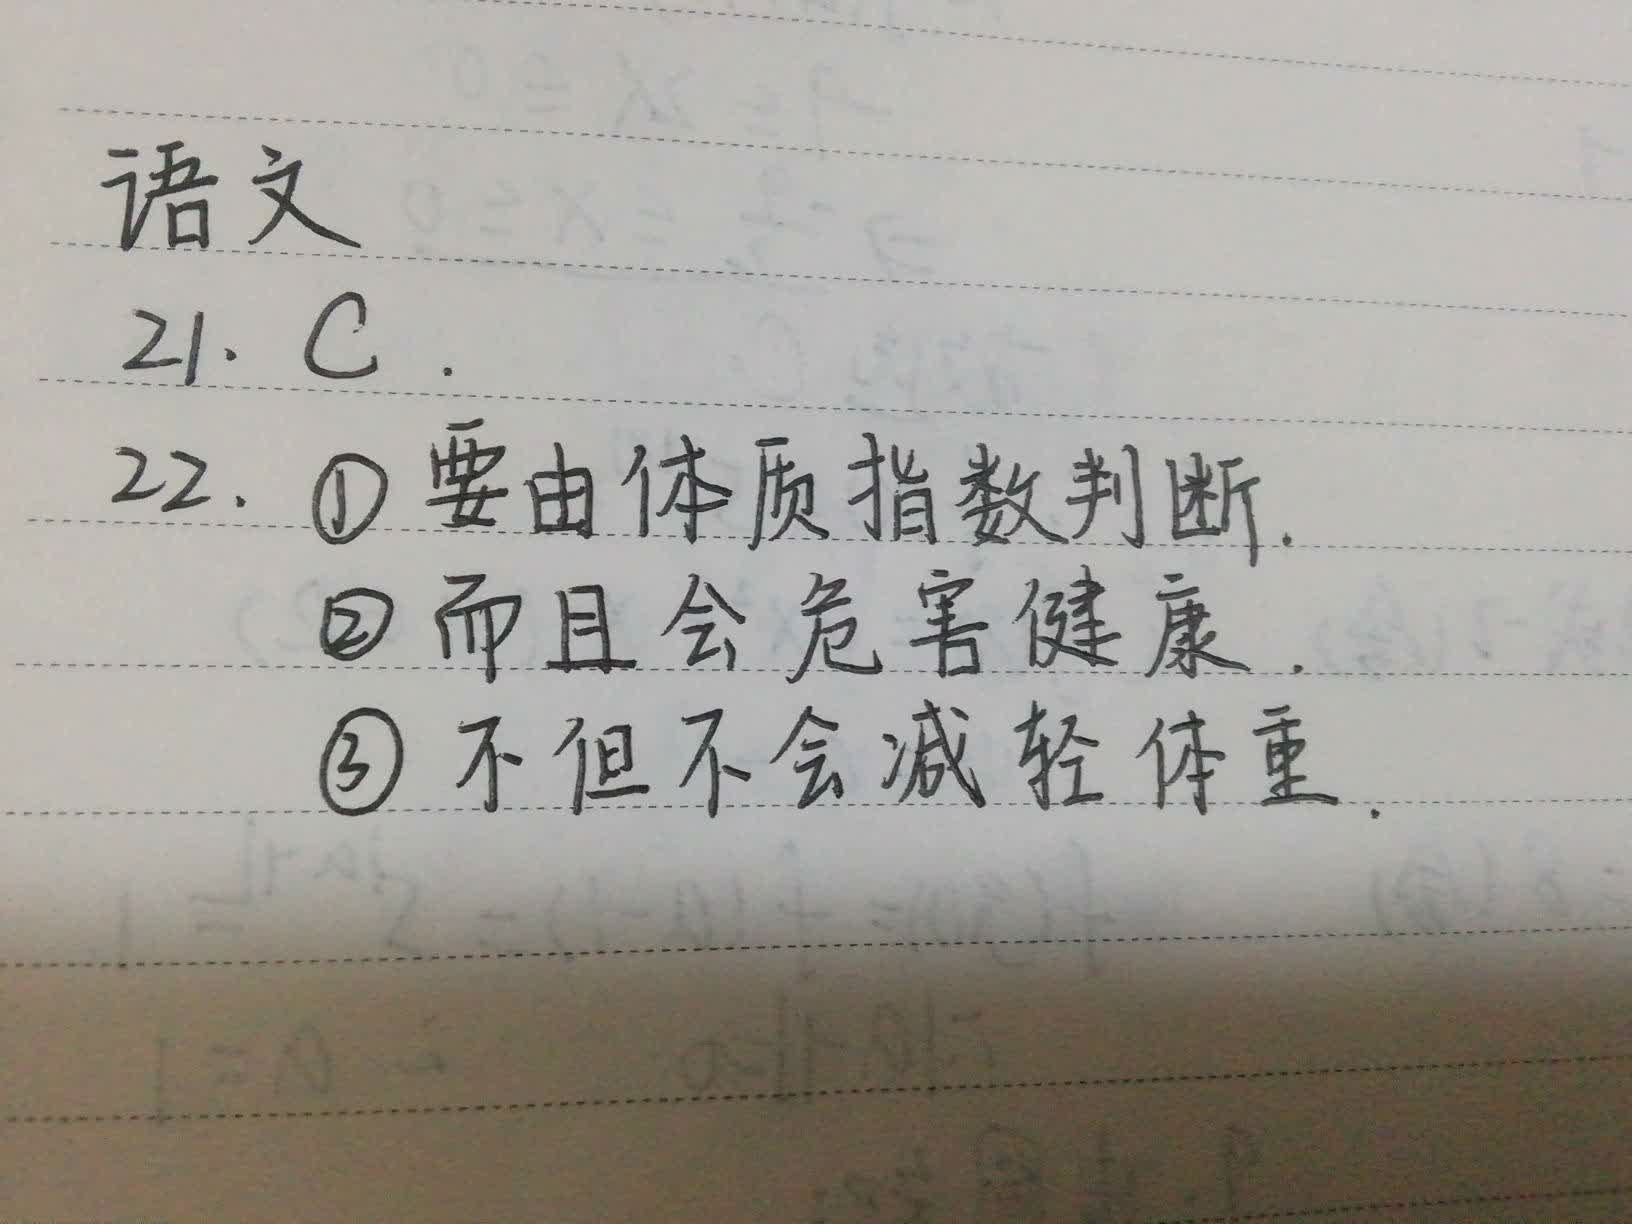 语文
21. C.
22. ①要由体质指数判断.
②而且会危害健康.
③不但不会减轻体重.